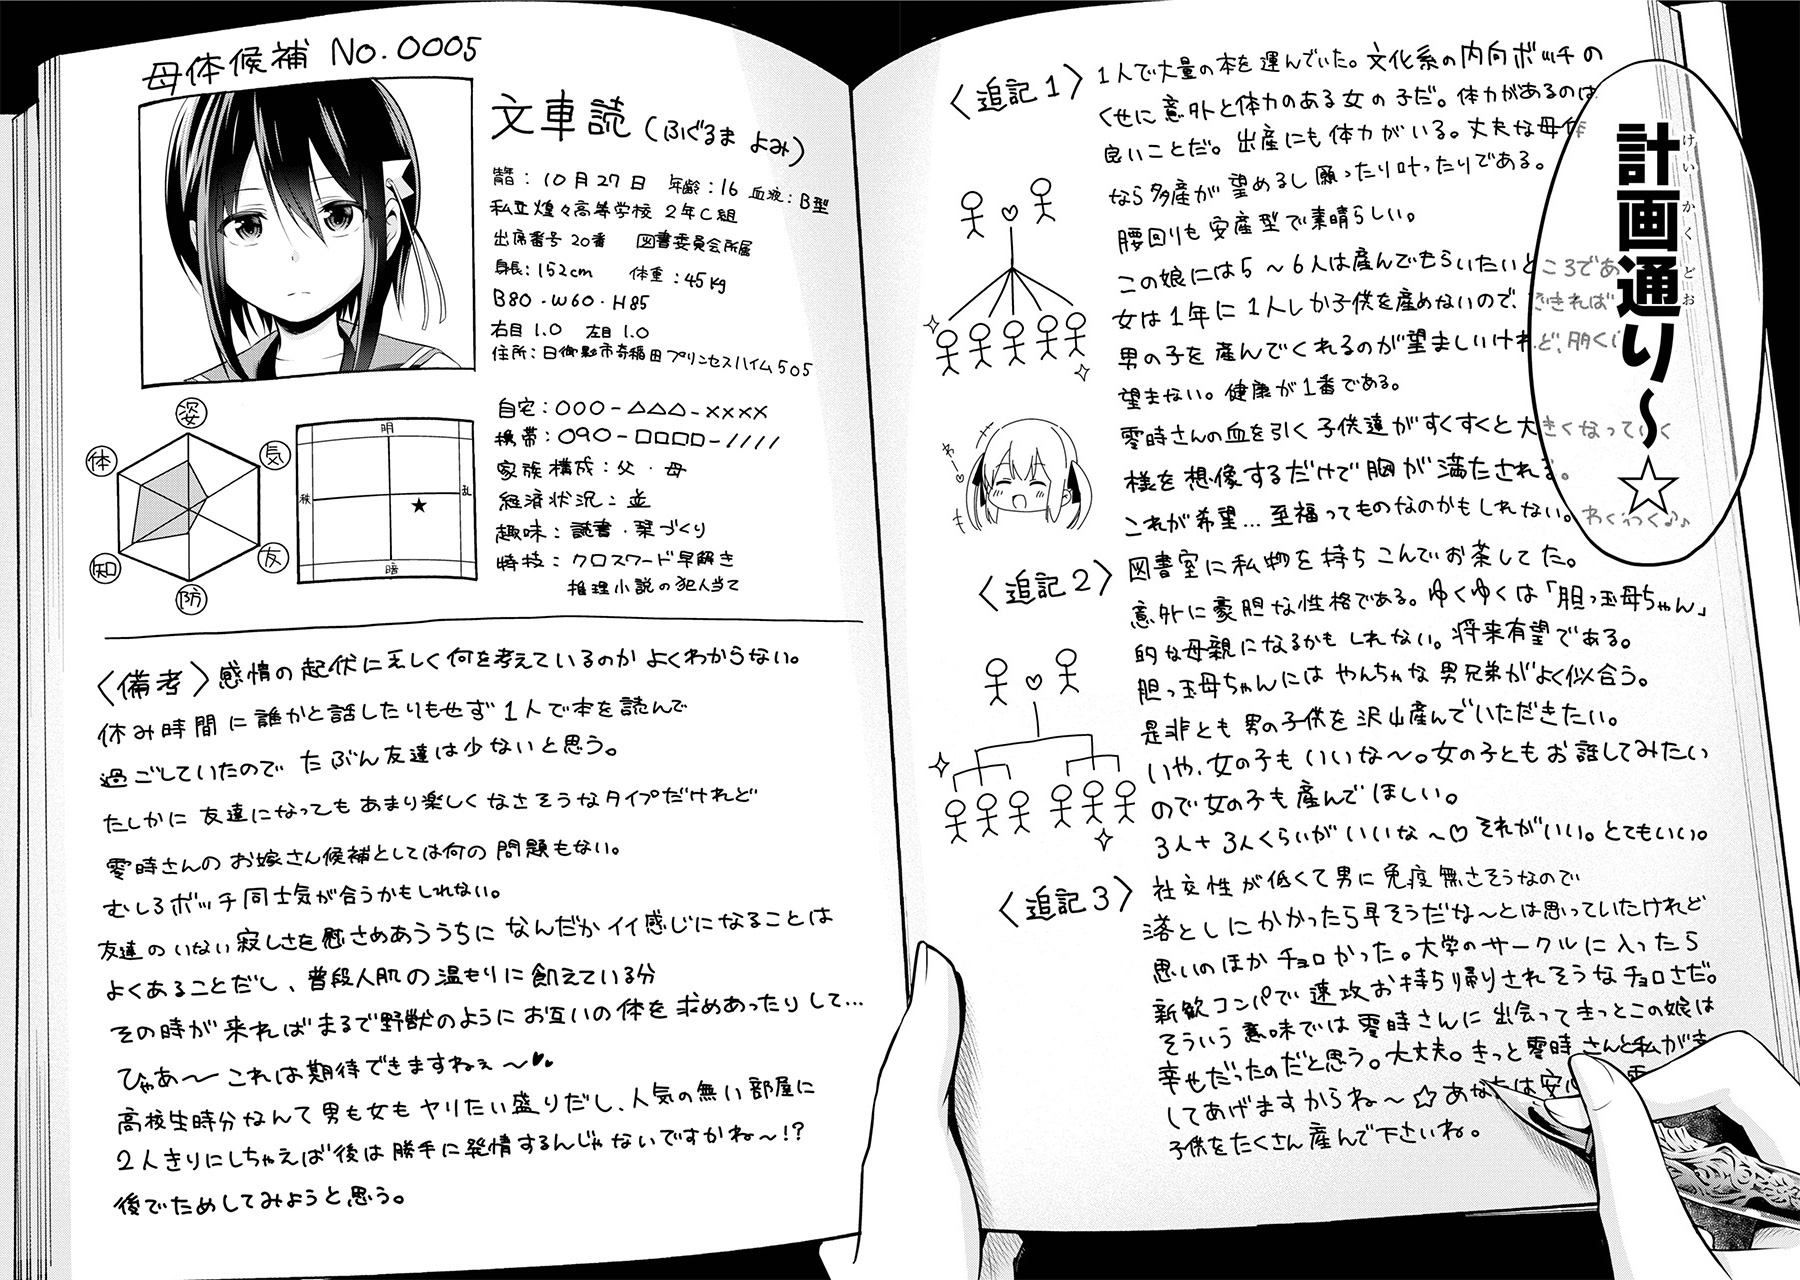 母体候補 No.0005
文車読 (ふぐるま よみ)
誕: 10月27日 年齢:16 血液:B型
私立煌々高等学校 2年C組
出席番号 20番 図書委員会所属
身長:152cm 体重:45kg
B80・W60・H85
右目 1.0 左目 1.0
住所:日御影市奇稲田プリンセスハイム505
自宅:○○○-△△△-××××
携帯:○90-□□□□-////
家族構成:父・母
経済状況:並
趣味:読書・栞づくり
特技:クロスワード早解き
推理小説の犯人当て
姿
気
友
防
知
体
明
乱
暗
秩
〈備考〉感情の起伏に乏しく何を考えているのかよくわからない。
休み時間に誰かと話したりもせず1人で本を読んで
過ごしていたのでたぶん友達は少ないと思う。
たしかに友達になってもあまり楽しくなさそうなタイプだけれど
零時さんのお嫁さん候補としては何の問題もない。
むしろボッチ同士気が合うかもしれない。
友達のいない寂しさを慰さめあううちになんだかイイ感じになることは
よくあることだし、普段人肌の温もりに飢えている分
その時が来ればまるで野獣のようにお互いの体を求めあったりして…
ひゃあ～これは期待できますねぇ～♥
高校生時分なんて男も女もヤリたい盛りだし、人気の無い部屋に
2人きりにしちゃえば後は勝手に発情するんじゃないですかね～!?
後でためしてみようと思う。
〈追記1〉
1人で大量の本を運んでいた。文化系の内向ボッチの
くせに意外と体力のある女の子だ。体力があるのは
良いことだ。出産にも体力がいる。丈夫な母体
なら多産が望めるし願ったり叶ったりである。
腰回りも安産型で素晴らしい。
この娘には5～6人は産んでもらいたいところであ
女は1年に1人しか子供を産めないので、できれば
男の子を産んでくれるのが望ましいけれど、多く
望まない。健康が1番である。
零時さんの血を引く子供達がすくすくと大きくなっていく
様を想像するだけで胸が満たされる。
これが希望…至福ってものなのかもしれない。わくわく♪♪
わー♡
〈追記2〉
図書室に私物を持ちこんでお茶してた。
意外に豪胆な性格である。ゆくゆくは「胆っ玉母ちゃん」
的な母親になるかもしれない。将来有望である。
胆っ玉母ちゃんにはやんちゃな男兄弟がよく似合う。
是非とも男の子供を沢山産んでいただきたい。
いや、女の子もいいな～。女の子ともお話してみたい
ので女の子も産んでほしい。
3人+3人くらいがいいな～♡それがいい。とてもいい。
〈追記3〉
社交性が低くて男に免疫無さそうなので
落としにかかったら早そうだな～とは思っていたけれど
思いのほかチョロかった。大学のサークルに入ったら
新歓コンパで速攻お持ち帰りされそうなチョロさだ。
そういう意味では零時さんに出会ってきっとこの娘は
幸せだったのだと思う。大丈夫。きっと零時さんと私が幸
してあげますからね～☆あなたは安心
子供をたくさん産んで下さいね。
計画通り～☆
けいかくどお